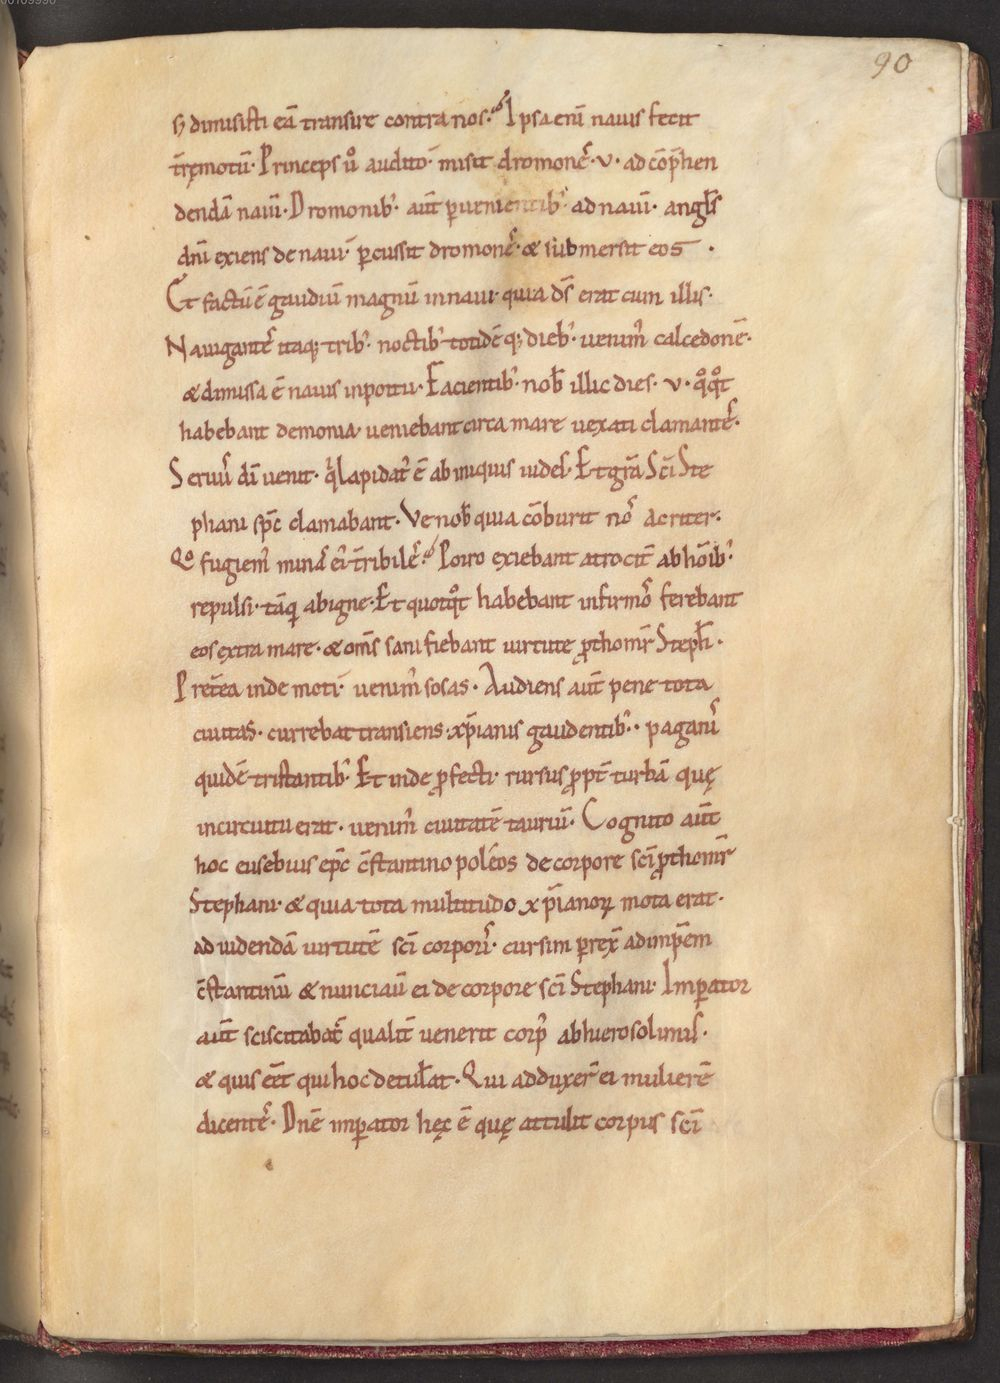 90
ꝩ dimisisti eā transire contra nos. Ipsa enī nauis fecit
t̄ręmotū. Princeps ů audito. misit dromonẽs .v. ad cōp̄hen
dendā nauī. Dromonib; aūt ꝑuenientib; ad nauī. angl̄s
dn̄i exiens de nauī. ꝑcussit dromonēs. & submersit eos.
Et factū ē gaudiū magnū in naui. quia ds̄ erat cum illis.
Nauigantēs itaq; trib; noctib; totidēq; dieb; uenim᷒ calcedonē.
& dimissa ē nauis in portu. Facientib; nob̄ illic dies .v. qͦqͦt
habebant demonia. ueniebant circa mare uexati clamantēs.
Seruus dī uenit. qͥ lapidat᷒ ē ab iniquis iudeis. Et gr̄a Sc̄i Ste
phani sp̄c clamabant. Ve nob̄ quia cōburit nos acriter.
Qͦ fugiem᷒ minas ei᷒ t̄ribilēs. Porro exiebant atrocit̄ ab hōib;
repulsi. tāqͣ ab igne. Et quotqͦt habebant infirmos ferebant
eos extra mare. & om̄s sani fiebant uirtute ꝓthom̄r Steph̄i.
Pret̄ea inde moti. uenim᷒ sosas. Audiens aūt pene tota
ciuitas. currebat transiens. xp̄ianis gaudentib;. paganis
quidē tristantib;. Et inde ꝓfecti. rursus ꝓpt̄ turbā quę
in circuitu erat. uenim᷒ ciuitatē tauriū. Cognito aūt
hoc eusebius ep̄c c̄stantinopoleos de corpore sc̄i ꝓthom̄r
Stephani. & quia tota multitudo xp̄ianoꝝ mota erat.
ad uidendā uirtutē sc̄i corporis. cursim ꝑrex̄ ad imp̄em
c̄stantinū & nunciauī ei de corpore sc̄i Stephani. Imꝑator
aūt sciscitabat᷒ qualit̄ uenerit corp᷒ ab hierosolimis.
& quis eēt qui hoc detul̄at. Qui adduxer̄ ei mulierē
dicentēs. Dn̄e imꝑator hęc ē quę attulit corpus sc̄i